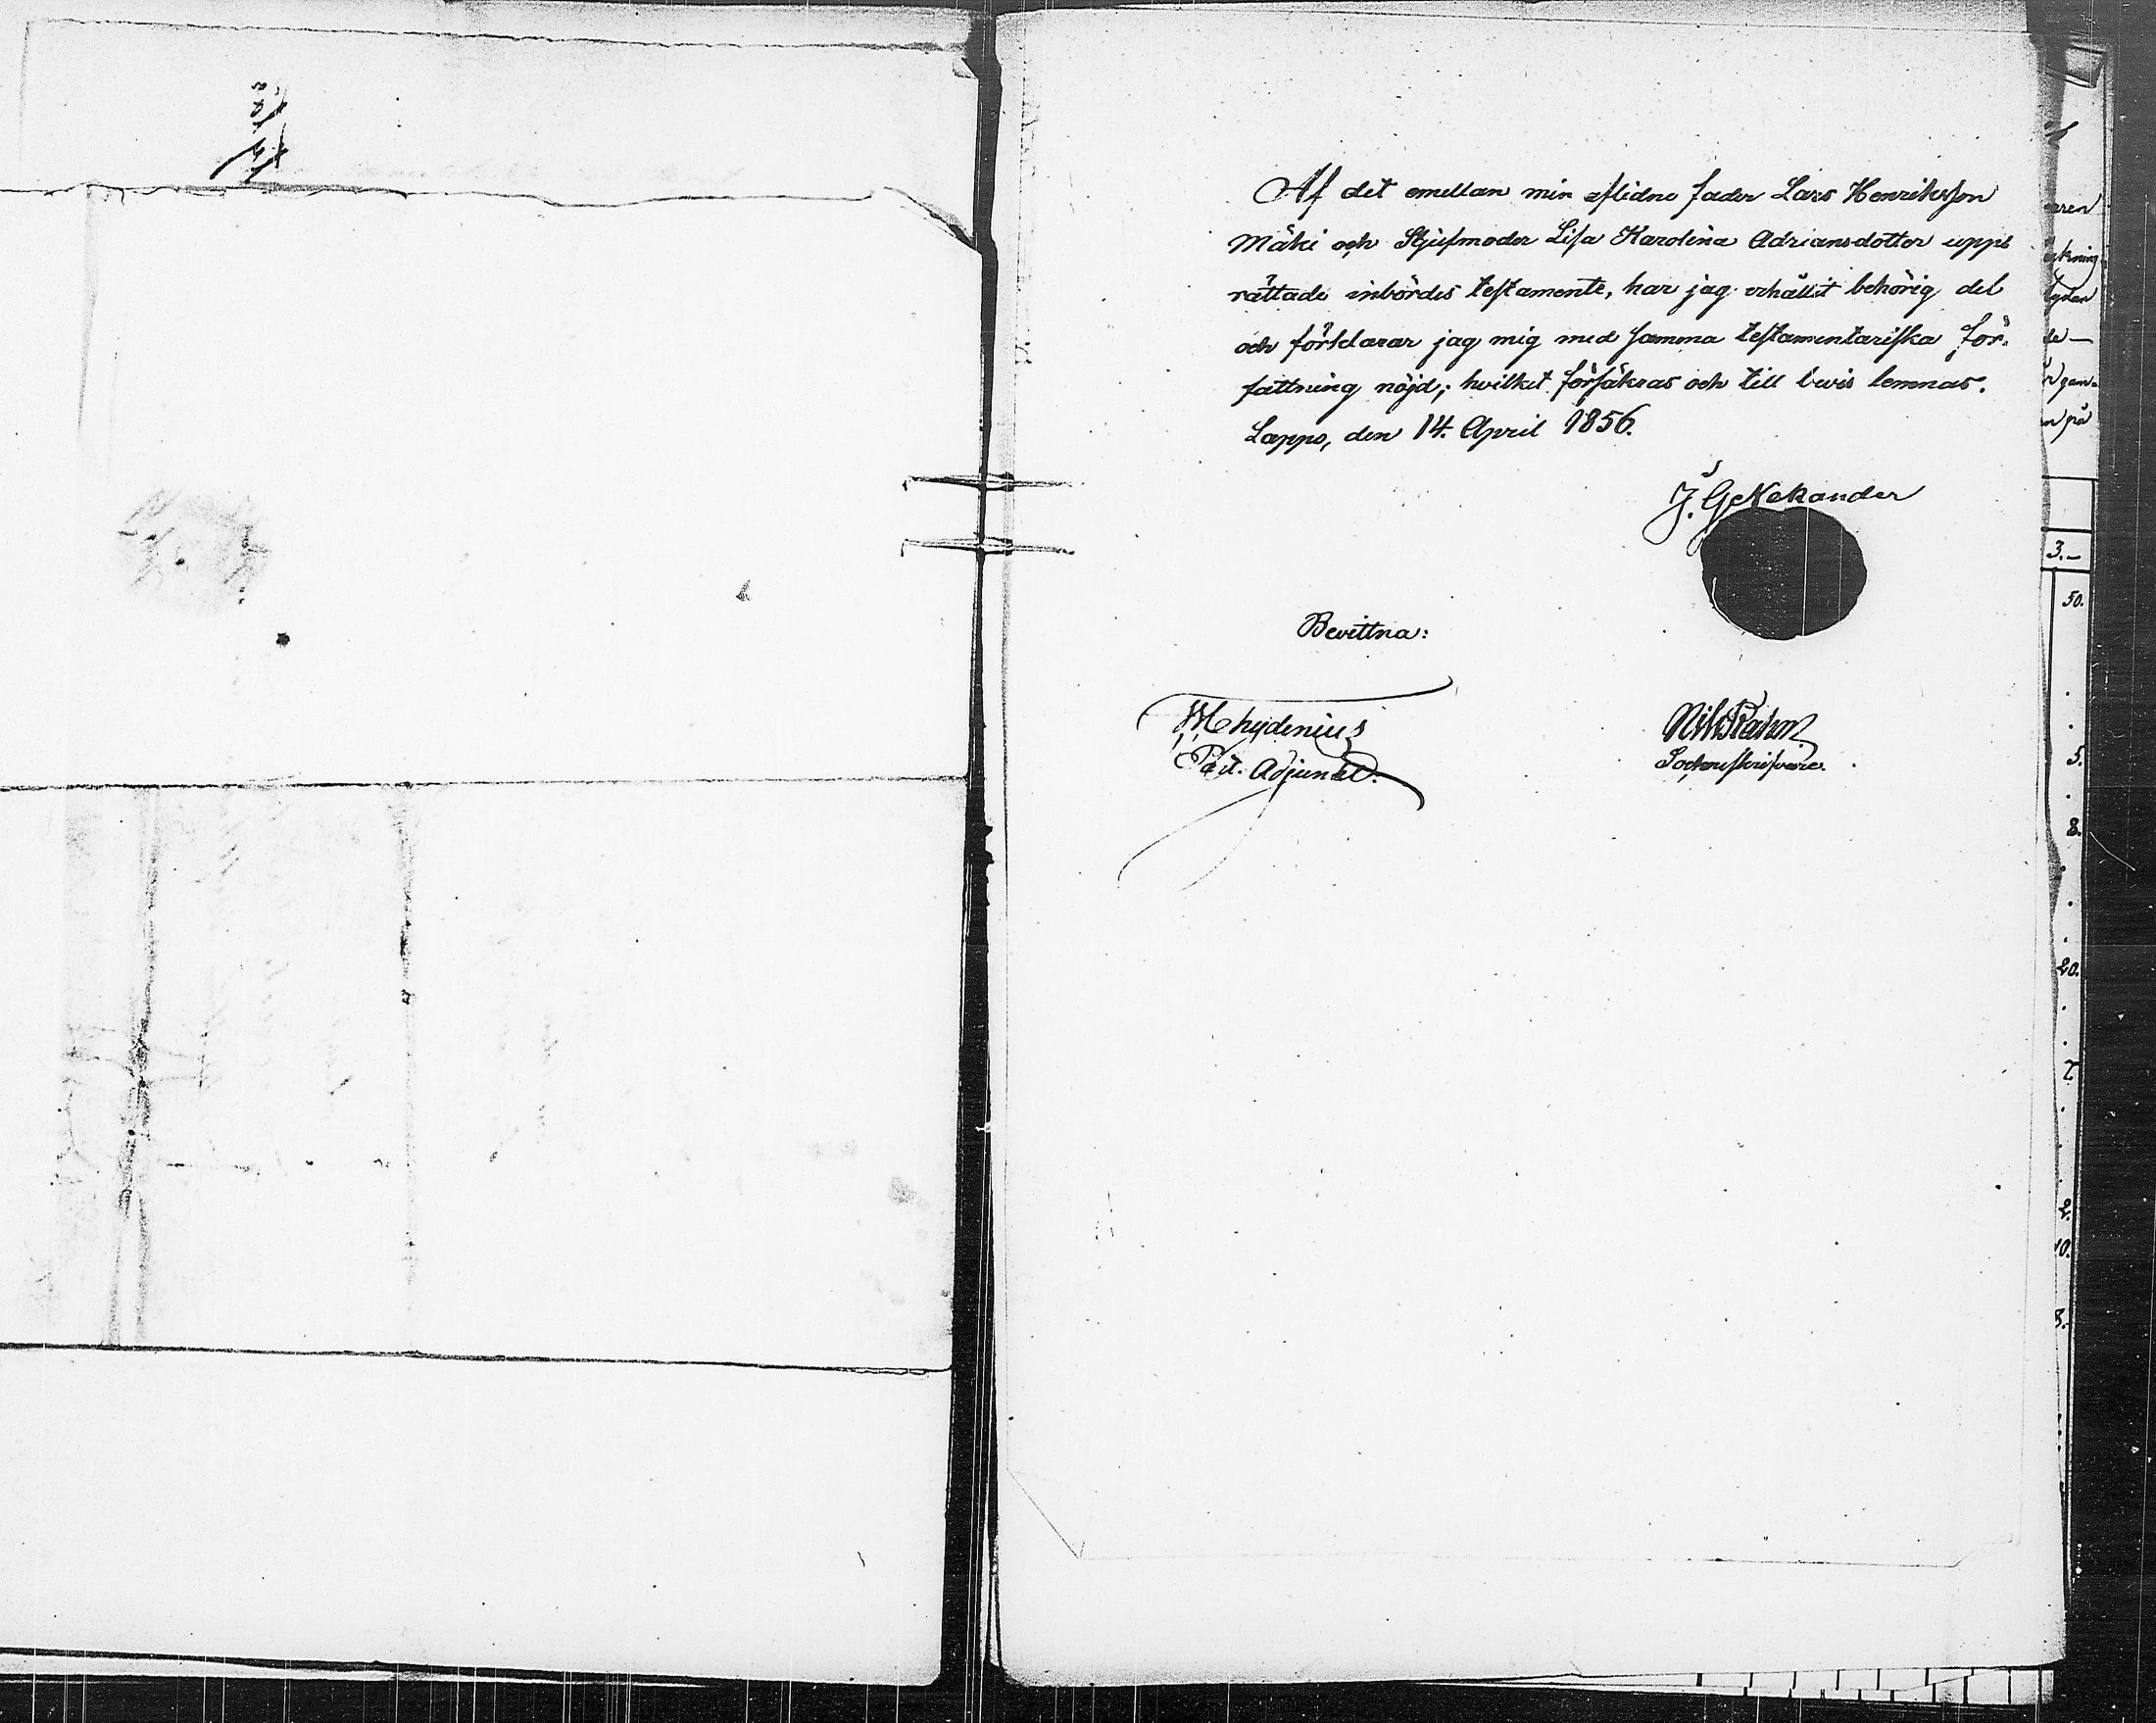 Af det emellan min aflidne fader Lars Henriksson
Mäki och Stjufmoder Lisa Karolina Adriansdotter upp-
rättade inbördes testamente, har jag erhållit behörig del
och förklarar jag mig med samma testamentariska för-
fattning nöjd; hvilket försäkras och till bevis lemnas.
Lappo, den 14. April 1856.
J. G. Nekander
Bevittna:
Chydenius
Past. Adjunkt.
Sockneskrifvare.
3.–
50.
5.
8.
20.
7.
2.
10.
8.